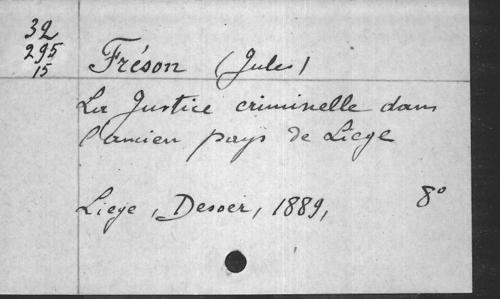 32
295
15
Fréson (Jules)
La Justice criminelle dans
l'ancien pays de Liège
Liège, Desoer, 1889, 8°